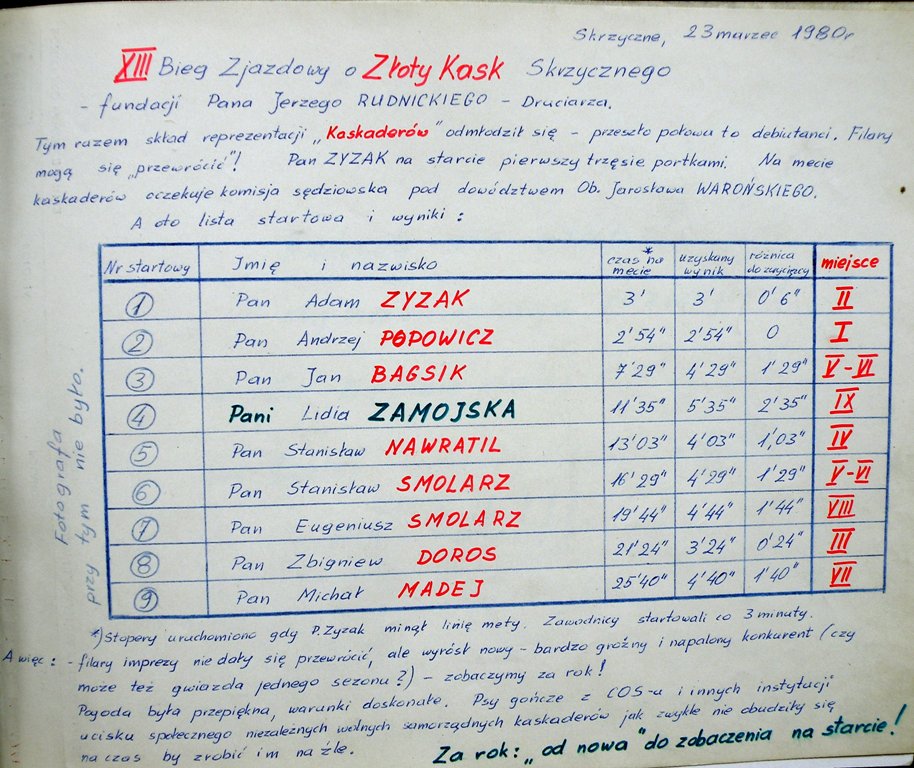 Skrzyczne, 23 marzec 1980r
XIII Bieg Zjazdowy o Złoty Kask Skrzycznego
- fundacji Pana Jerzego RUDNICKIEGO - Druciarza.
Tym razem skład reprezentacji „Kaskaderów" odmłodził się - przeszło połowa to debiutanci. Filary
mogą się „przewrócić"! Pan ZYZAK na starcie pierwszy trzęsie portkami. Na mecie
kaskaderów oczekuje komisja sędziowska pod dowództwem Ob. Jarosława WAROŃSKIEGO.
A oto lista startowa i wyniki :
Nr startowy Imię i nazwisko czas na mecie * uzyskany wynik różnica do zwycięzcy miejsce
1 Pan Adam ZYZAK 3' 3' 0'6" II
2 Pan Andrzej POPOWICZ 2'54" 2'54" 0 I
3 Pan Jan BAGSIK 7'29" 4'29" 1'29" V-VI
4 Pani Lidia ZAMOJSKA 11'35" 5'35" 2'35" IX
5 Pan Stanisław NAWRATIL 13'03" 4'03" 1'03" IV
6 Pan Stanisław SMOLARZ 16'29" 4'29" 1'29" V-VI
7 Pan Eugeniusz SMOLARZ 19'44" 4'44" 1'44" VIII
8 Pan Zbigniew DOROS 21'24" 3'24" 0'24" III
9 Pan Michał MADEJ 25'40" 4'40" 1'40" VII
Fotografa
przy tym nie było.
*) Stopery uruchomiono gdy P. Zyzak minął linię mety. Zawodnicy startowali co 3 minuty.
A więc : - filary imprezy nie dały się przewrócić, ale wyrósł nowy - bardzo groźny i napalony konkurent (czy
może też gwiazda jednego sezonu?) - zobaczymy za rok!
Pogoda była przepiękna, warunki doskonałe. Psy gończe z COS-u i innych instytucji
ucisku społecznego niezależnych wolnych samorządnych kaskaderów jak zwykle nie obudziły się
na czas by zrobić im na źle.
Za rok: „od nowa" do zobaczenia na starcie!